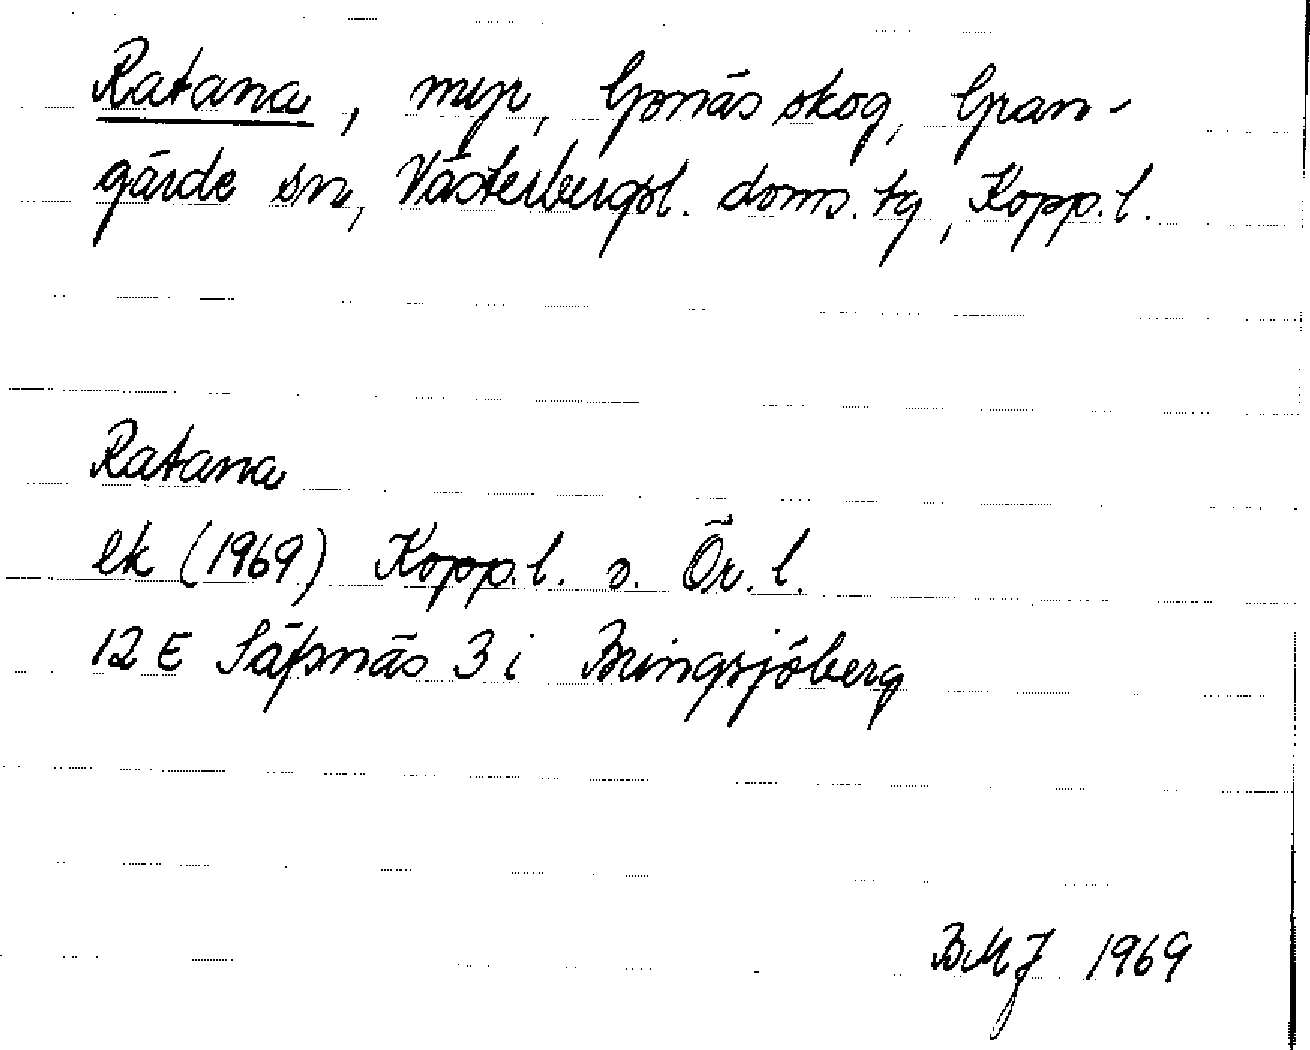 Ratana, myr, Gonäs skog, Gran-
gärde sn, Västerbergsl. doms. tg, Kopp. l.
Ratana
ek (1969) Kopp. l. s. Ör. l.
12 E Säfsnäs 3 i Bringsjöberg
BMJ 1969